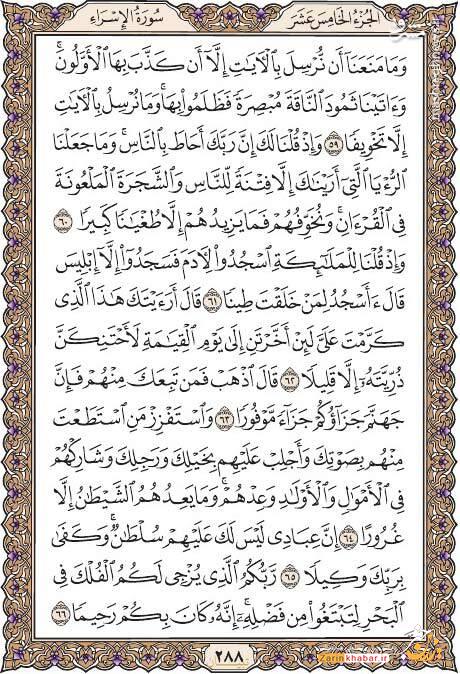 الجُزْءُ الخَامِسُ عَشَرَ
سُورَةُ الإِسْرَاءِ
وَمَا مَنَعَنَآ أَن نُّرْسِلَ بِٱلْـَٔايَٰتِ إِلَّآ أَن كَذَّبَ بِهَا ٱلْأَوَّلُونَ ۚ
وَءَاتَيْنَا ثَمُودَ ٱلنَّاقَةَ مُبْصِرَةً فَظَلَمُوا۟ بِهَا ۚ وَمَا نُرْسِلُ بِٱلْـَٔايَٰتِ
إِلَّا تَخْوِيفًا ٥٩ وَإِذْ قُلْنَا لَكَ إِنَّ رَبَّكَ أَحَاطَ بِٱلنَّاسِ ۚ وَمَا جَعَلْنَا
ٱلرُّءْيَا ٱلَّتِىٓ أَرَيْنَٰكَ إِلَّا فِتْنَةً لِّلنَّاسِ وَٱلشَّجَرَةَ ٱلْمَلْعُونَةَ
فِى ٱلْقُرْءَانِ ۚ وَنُخَوِّفُهُمْ فَمَا يَزِيدُهُمْ إِلَّا طُغْيَٰنًا كَبِيرًا ٦٠
وَإِذْ قُلْنَا لِلْمَلَٰٓئِكَةِ ٱسْجُدُوا۟ لِـَٔادَمَ فَسَجَدُوٓا۟ إِلَّآ إِبْلِيسَ
قَالَ ءَأَسْجُدُ لِمَنْ خَلَقْتَ طِينًا ٦١ قَالَ أَرَءَيْتَكَ هَٰذَا ٱلَّذِى
كَرَّمْتَ عَلَىَّ لَئِنْ أَخَّرْتَنِ إِلَىٰ يَوْمِ ٱلْقِيَٰمَةِ لَأَحْتَنِكَنَّ
ذُرِّيَّتَهُۥٓ إِلَّا قَلِيلًا ٦٢ قَالَ ٱذْهَبْ فَمَن تَبِعَكَ مِنْهُمْ فَإِنَّ
جَهَنَّمَ جَزَآؤُكُمْ جَزَآءً مَّوْفُورًا ٦٣ وَٱسْتَفْزِزْ مَنِ ٱسْتَطَعْتَ
مِنْهُم بِصَوْتِكَ وَأَجْلِبْ عَلَيْهِم بِخَيْلِكَ وَرَجِلِكَ وَشَارِكْهُمْ
فِى ٱلْأَمْوَٰلِ وَٱلْأَوْلَٰدِ وَعِدْهُمْ ۚ وَمَا يَعِدُهُمُ ٱلشَّيْطَٰنُ إِلَّا
غُرُورًا ٦٤ إِنَّ عِبَادِى لَيْسَ لَكَ عَلَيْهِمْ سُلْطَٰنٌ ۚ وَكَفَىٰ
بِرَبِّكَ وَكِيلًا ٦٥ رَّبُّكُمُ ٱلَّذِى يُزْجِى لَكُمُ ٱلْفُلْكَ فِى
ٱلْبَحْرِ لِتَبْتَغُوا۟ مِن فَضْلِهِۦٓ ۚ إِنَّهُۥ كَانَ بِكُمْ رَحِيمًا ٦٦
٢٨٨
Zarinkhabar.ir